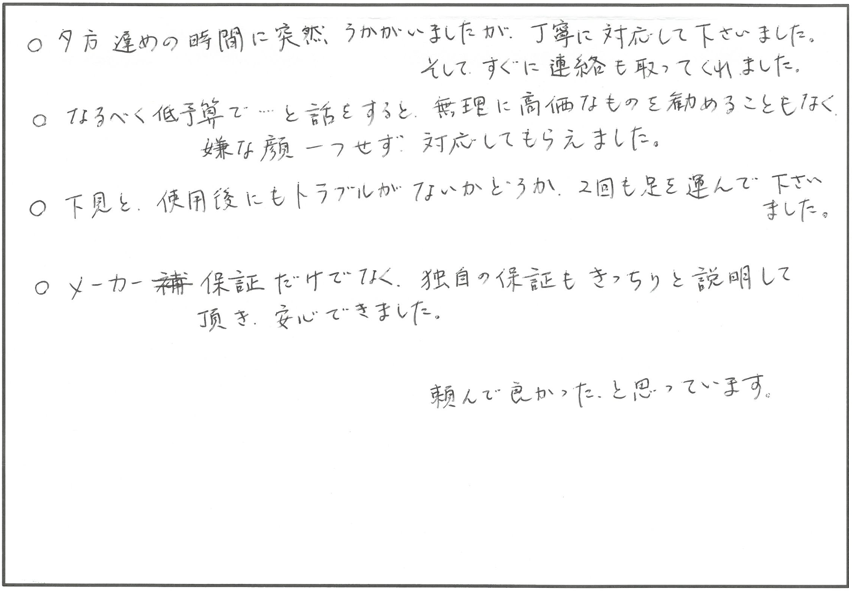 ○ 夕方遅めの時間に突然、うかがいましたが、丁寧に対応して下さいました。
そして、すぐに連絡も取ってくれました。
○ なるべく低予算で…と話をすると、無理に高価なものを勧めることもなく、
嫌な顔一つせず、対応してもらえました。
○ 下見と、使用後にもトラブルがないかどうか、2回も足を運んで下さい
ました。
○ メーカー補保証だけでなく、独自の保証もきっちりと説明して
頂き、安心できました。
頼んで良かった、と思っています。